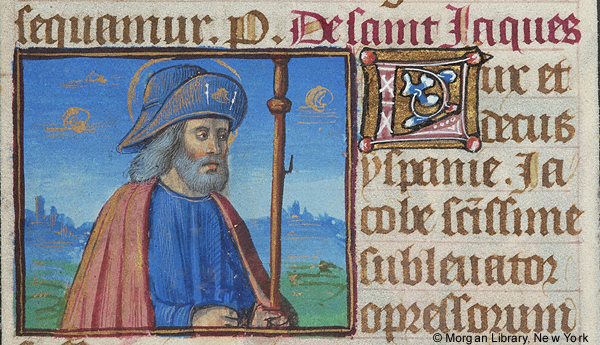 sequamur. P. De saint Jaques
Lux et
decus
yspanie. Ja
cobe sc̃issime
subleuator
opressorum
© Morgan Library, New York